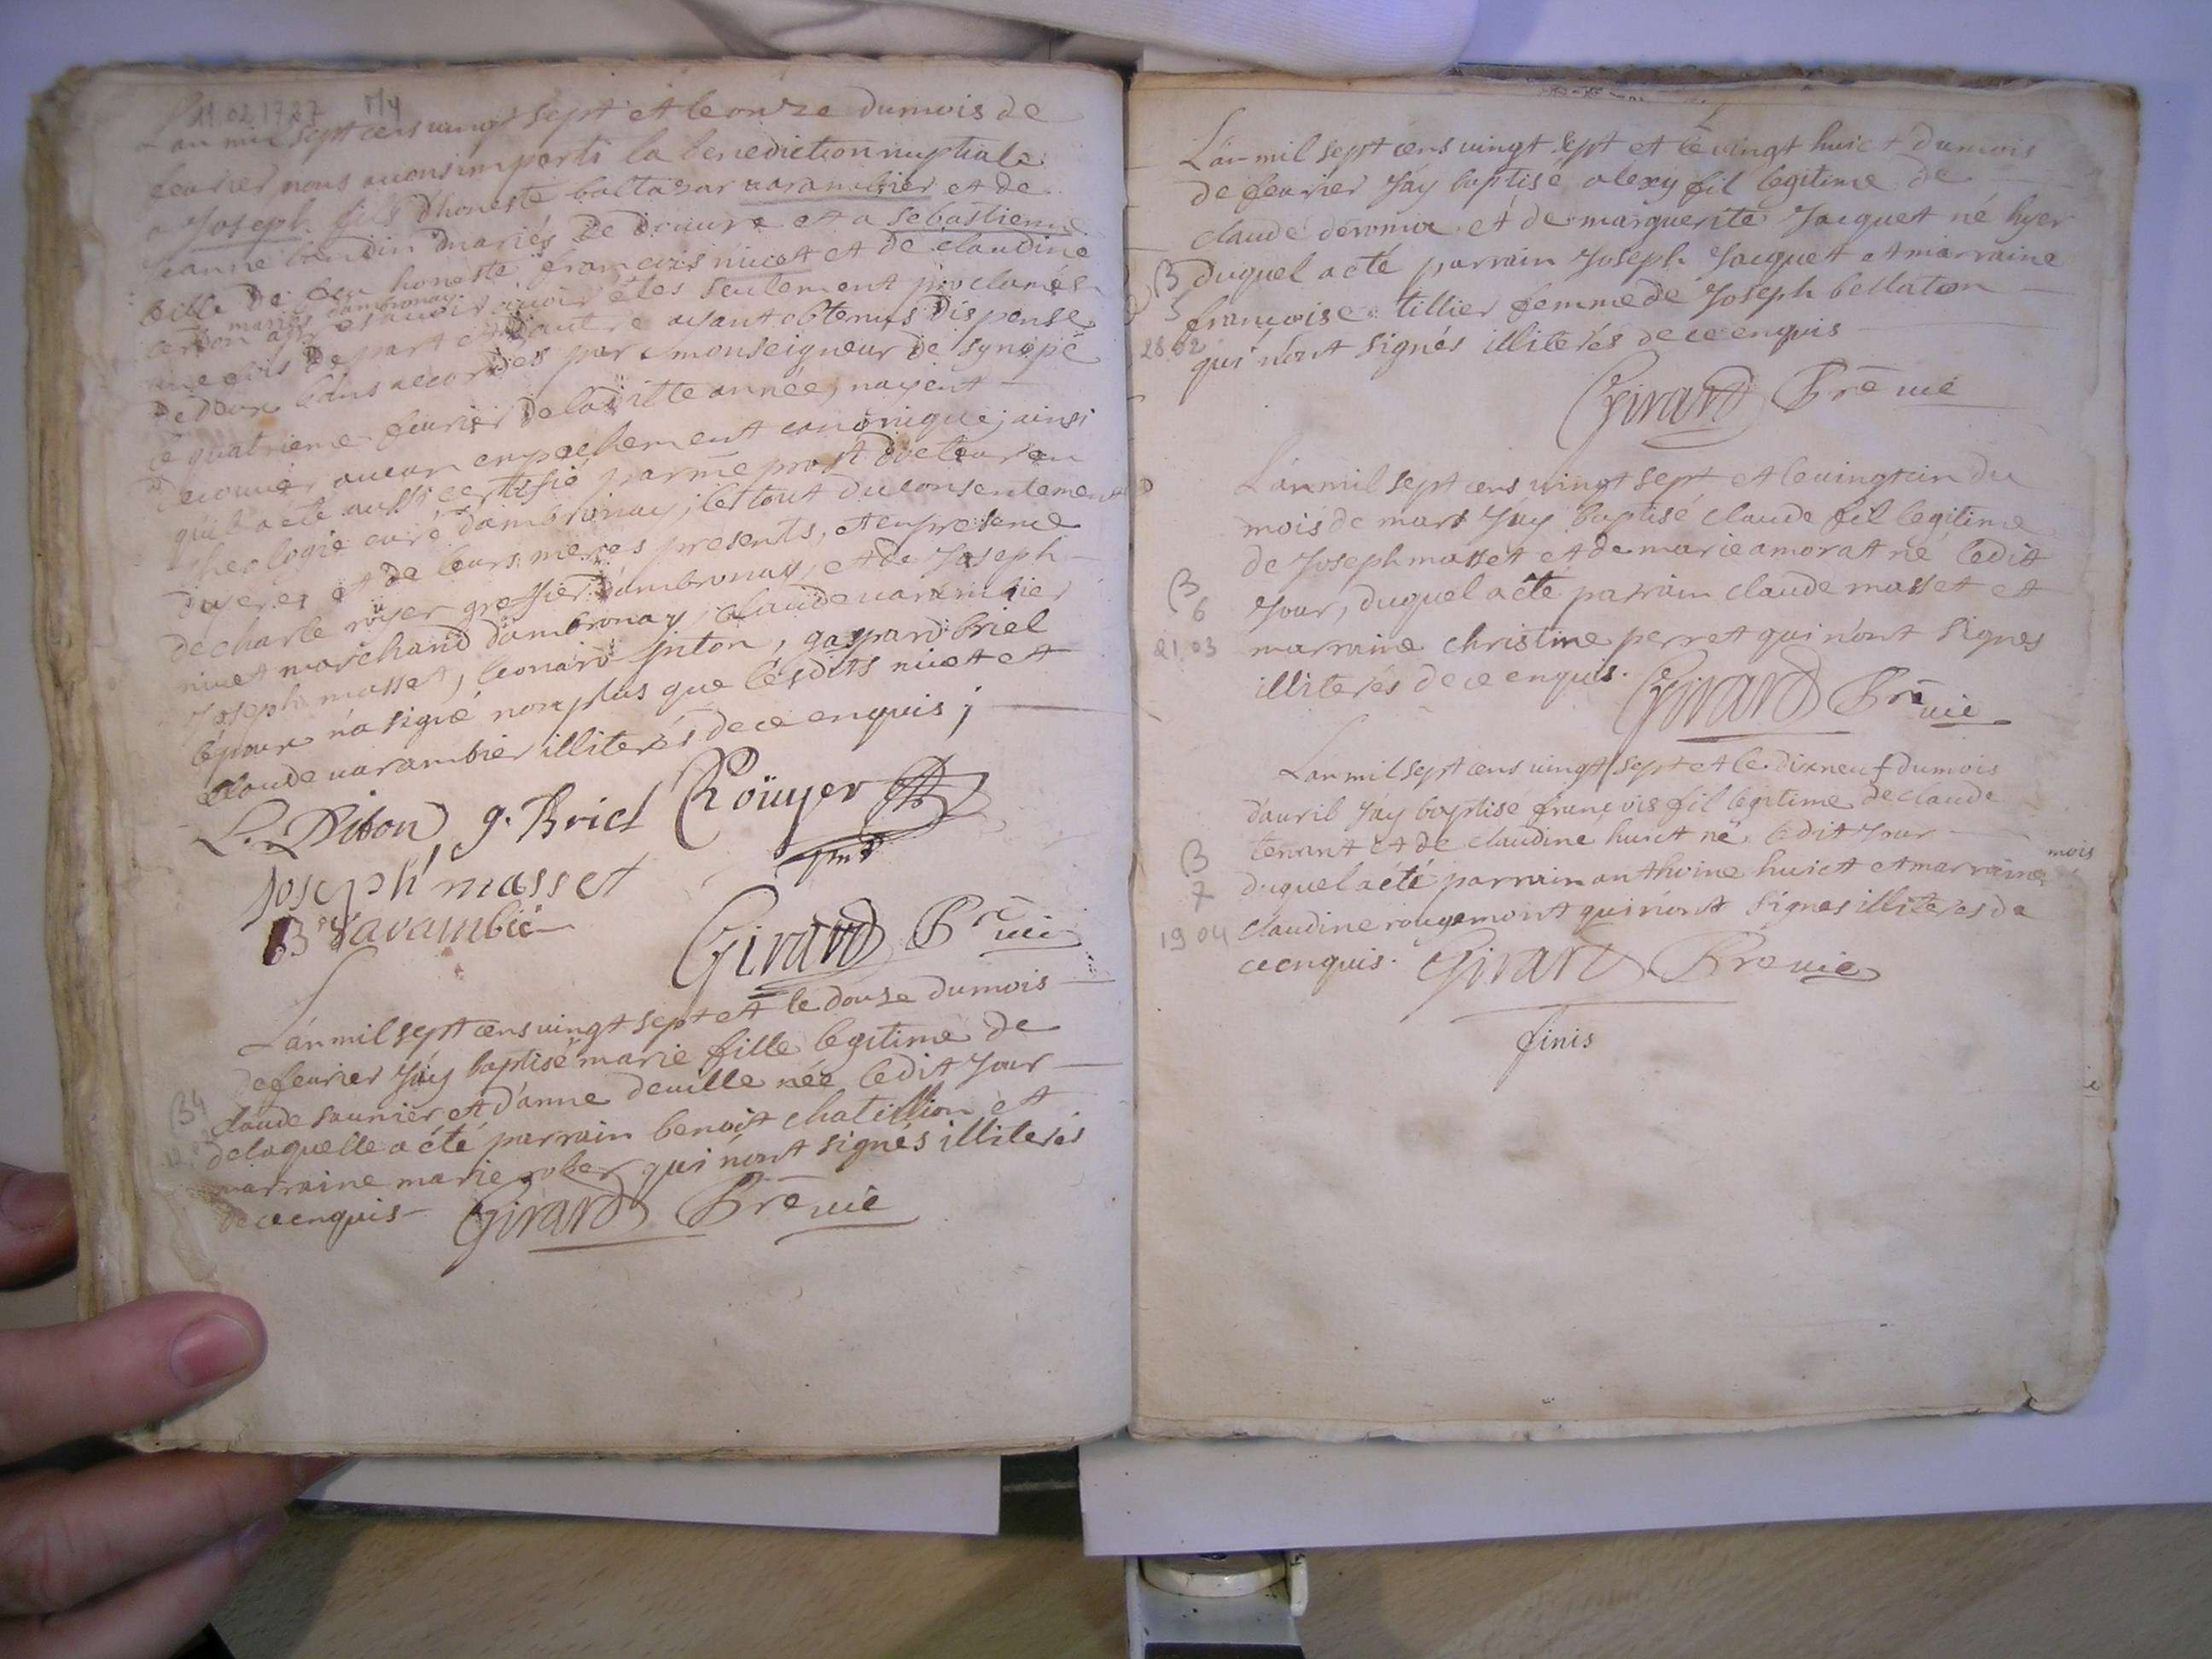 11 02 1727 M4
L'an mil sept cens vingt sept et le onze du mois de
fevrier nous avons imparti la benediction nuptiale
a Joseph fils d'honeste baltazar varambier et de
Jeanne bondin mariés de douvre et a sebastienne
fille de feu honeste francois nivet et de claudine
cerdon mariés dambronay apres avoir étes seulement proclamés
une fois de part et d'autre ayant obtenus dispense
de deux bans accordes par monseigneur de synope
le quatrieme fevrier de laditte année, n'ayent
decouvert aucun enpechement canonique; ainsi
qu'il a eté aussi certifié par me prost docteur en
theologie curé dambronay; le tout du consentement
du pere et de leurs meres presents, et en presence
de charle royer greffier d'ambronay, et de Joseph
nivet marchand dambronay, claude varambier
Joseph masset, leonard piton, gaspard briel
l'epoux n'a signé non plus que lesdits nivet et
claude varambier illiterés de ce enquis;
L. Piton g. Briel Roüyer
Joseph masset
B Varambié
Girard Bre vic
B4
L'an mil sept cens vingt sept et le douze du mois
de fevrier J'ay baptisé marie fille legitime de
claude saunier et d'anne deville née ledit Jour
delaquelle a été parrain benoist chatillion et
marraine marie rober qui n'ont signés illiterés
de ce enquis Girard Pre vic
L'an mil sept cens vingt sept et le vingt huict du mois
de fevrier J'ay baptisé alexy fil legitime de
claude et de marguerite Jacquet né hyer
B duquel a eté parrain Joseph Jacquet et marraine
5 françoise tillier femme de Joseph bellaton
28.02 qui n'ont signés illiterés de ce enquis
Girard Pre vic
L'an mil sept cens vingt sept et le vingt un du
mois de mars J'ay baptisé claude fil legitime
de Joseph masset et de marie amorat né ledit
B
6 Jour, duquel a eté parrain claude masset et
21.03 marraine christine perret qui n'ont signes
illiterés de ce enquis. Girard Pre vic
L'an mil sept cens vingt sept et le dixneuf du mois
d'avril J'ay baptisé françois fil legitime de claude
tenant et de claudine huict né ledit Jour mois
B
7 duquel a été parrain anthoine huict et marraine
19 04 claudine rougemont qui n'ont signes illiteres de
ce enquis. Girard Pre vic
finis